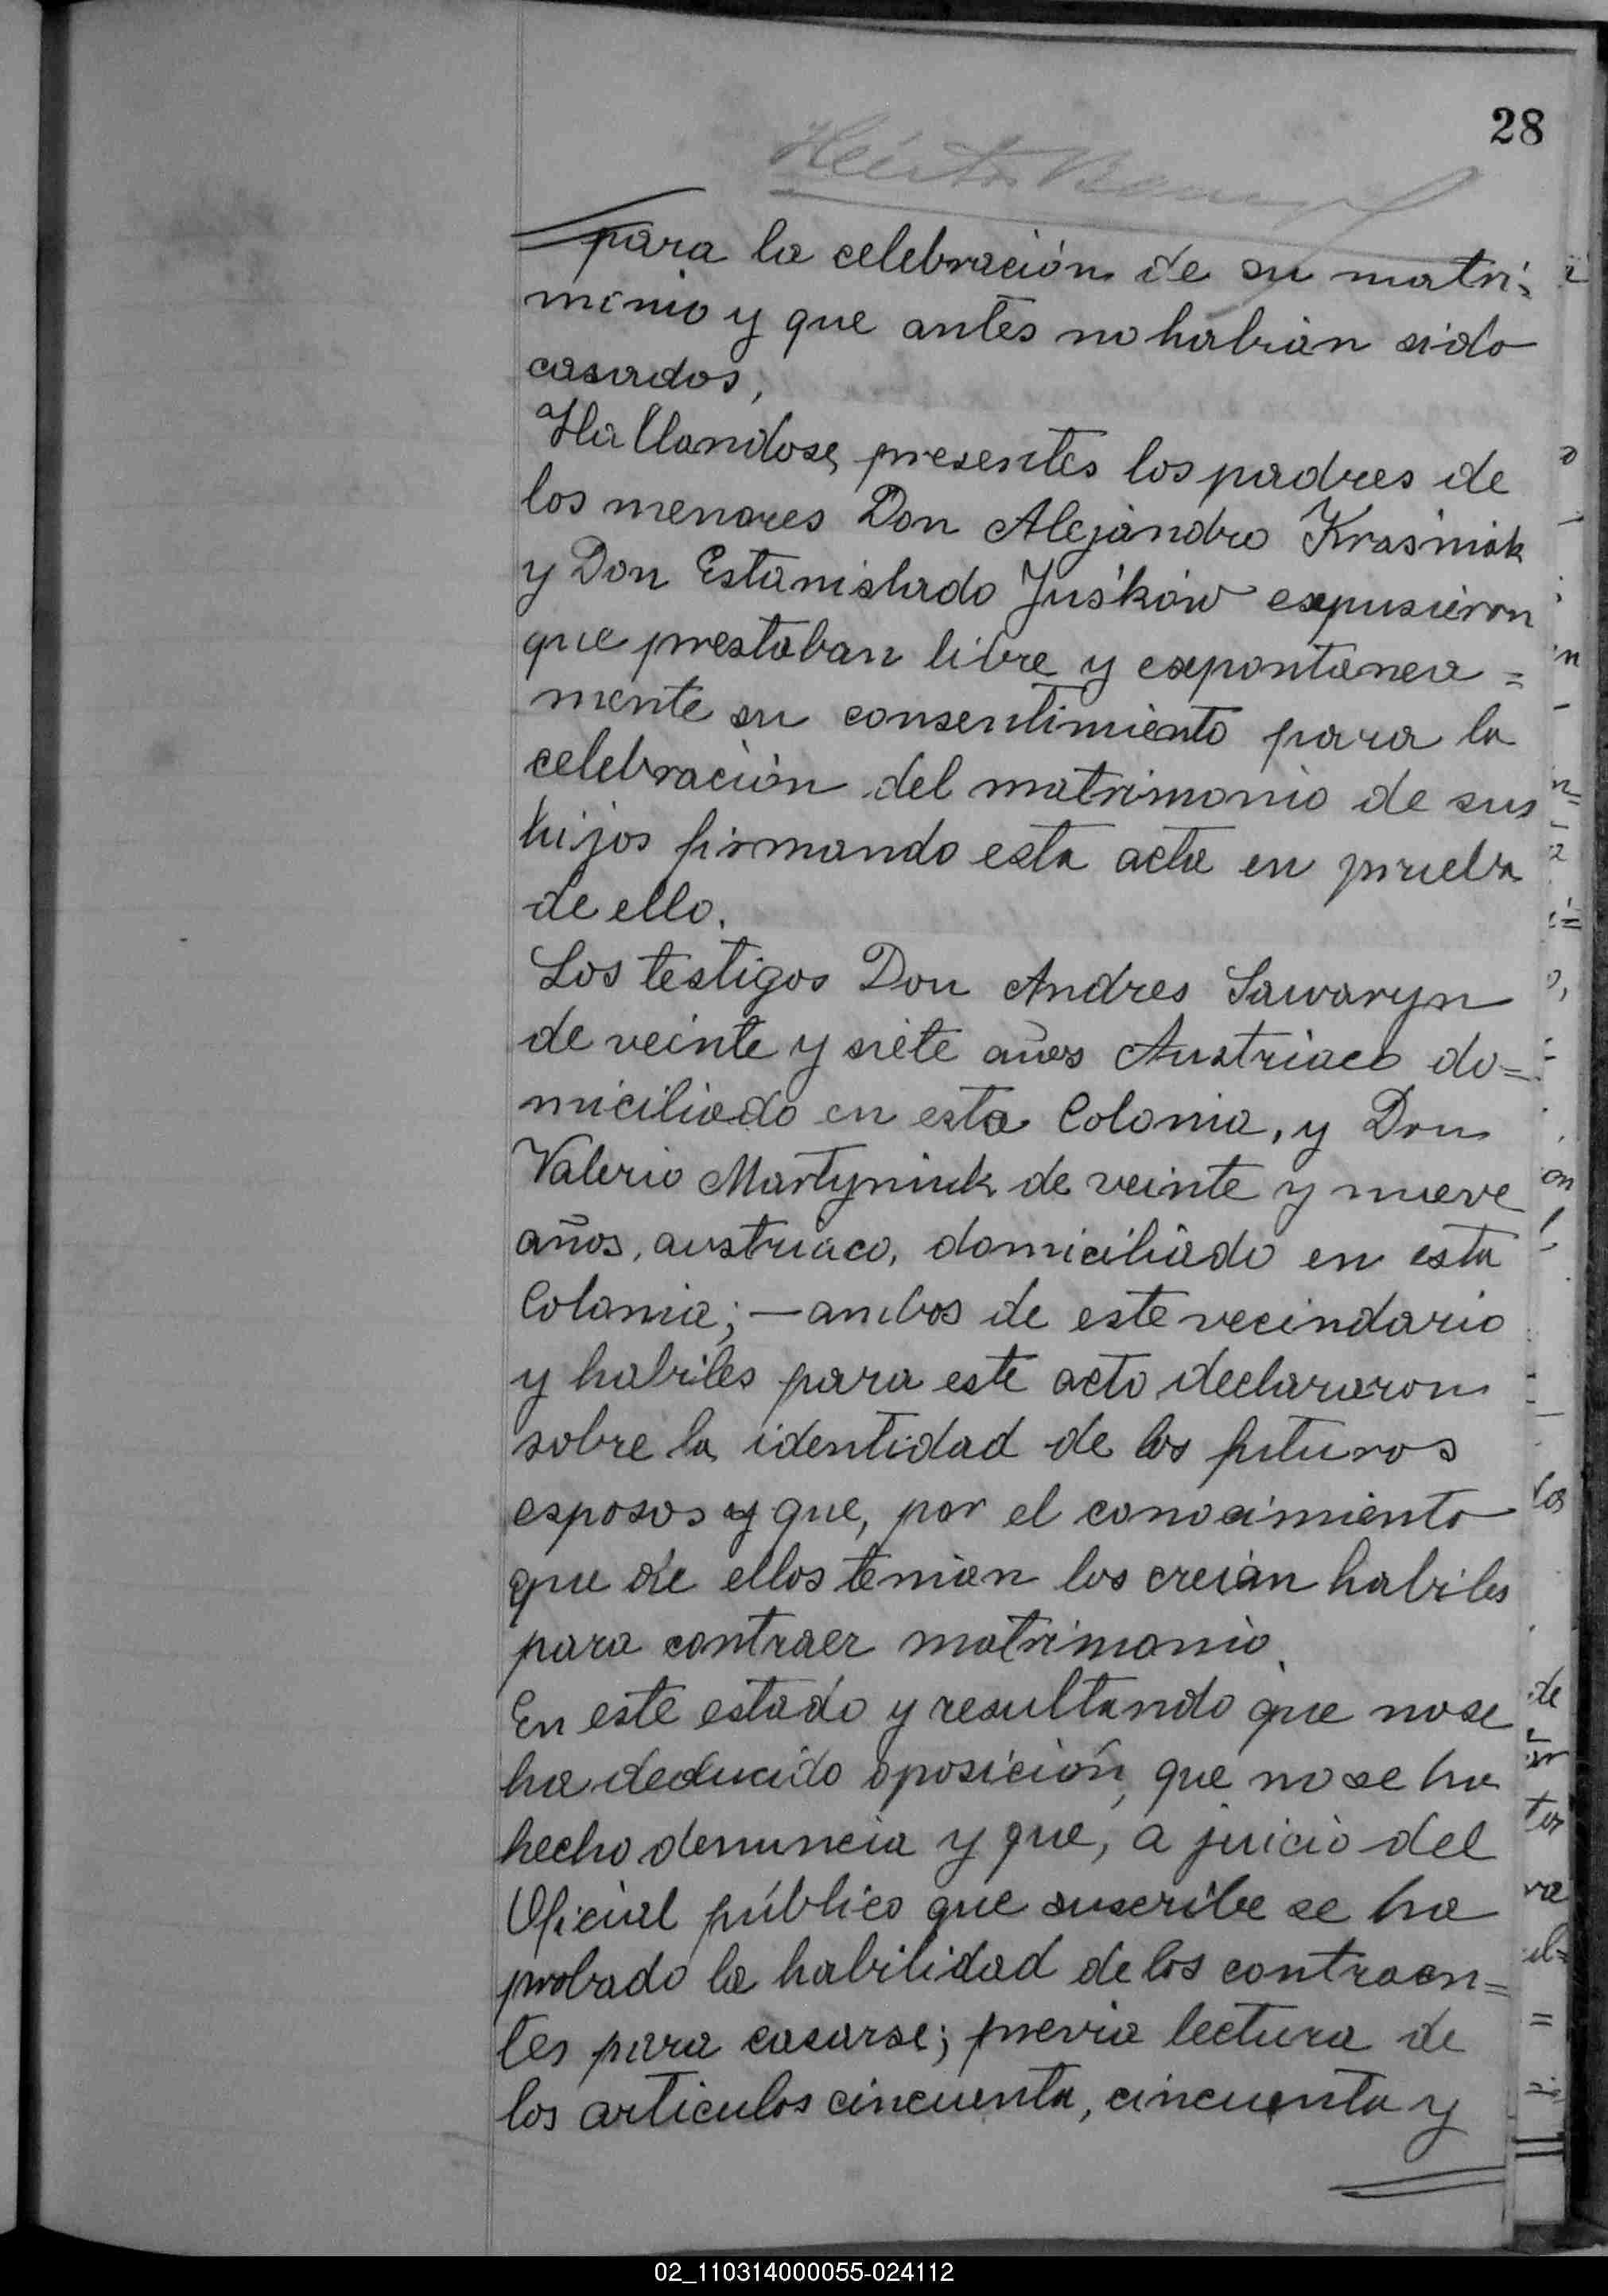 28
para la celebración de su matri=
monio y que antes no habian sido
casados,
Hallandose presentes los padres de
los menores Don Alejandro Kraśniak
y Don Estanislado Juśków expusieron
que prestaban libre y espontanea=
mente su consentimiento para la
celebración del matrimonio de sus
hijos firmando esta acta en prueba
de ello.
Los testigos Don Andres Sawaryn
de veinte y siete años Austriaco do=
miciliado en esta Colonia, y Don
Valerio Martyniuk de veinte y nueve
años, austriaco, domiciliado en esta
Colonia; — ambos de este vecindario
y habiles para este acto declararon
sobre la identidad de los futuros
esposos y que, por el conocimiento
que de ellos tenian los creian habiles
para contraer matrimonio.
En este estado y resultando que no se
ha deducido oposición, que no se ha
hecho denuncia y que, a juicio del
Oficial público que suscribe se ha
probado la habilidad de los contraen=
tes para casarse; previa lectura de
los articulos cincuenta, cincuenta y
02_110314000055-024112